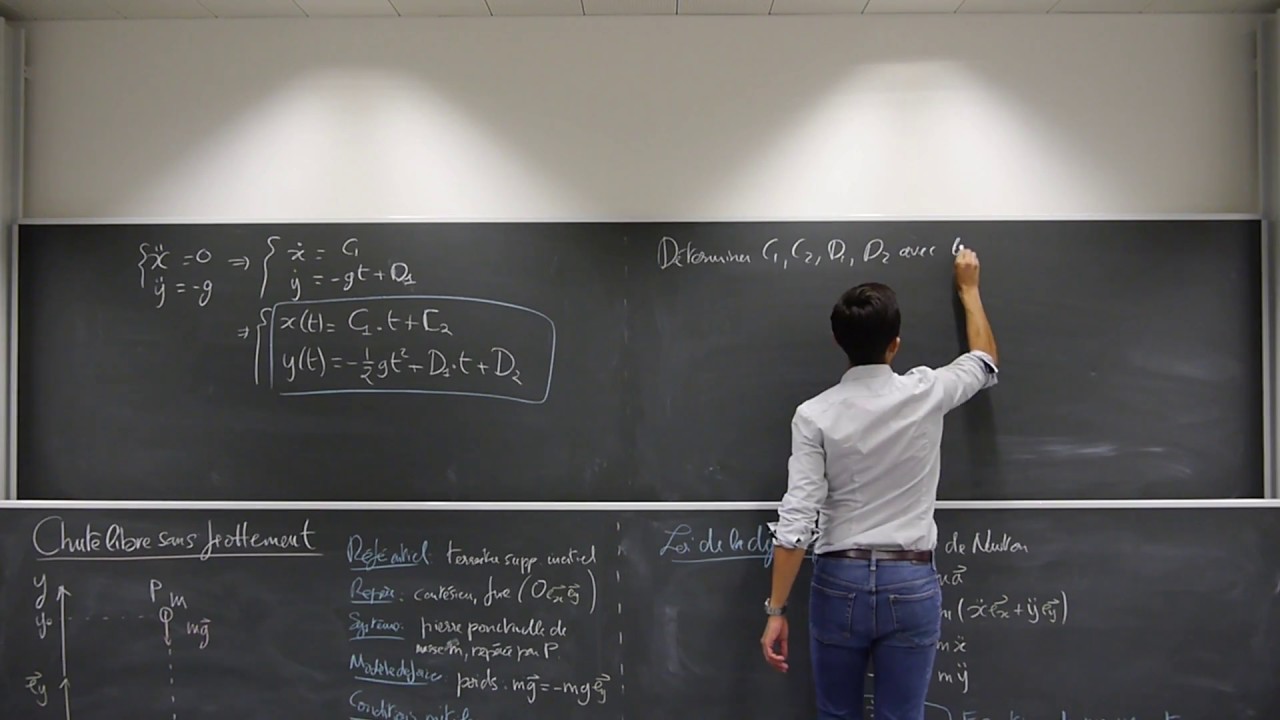 ẍ = 0 ⇒ ẋ = C₁
ÿ = -g ẏ = -gt + D₁
⇒ x(t) = C₁·t + C₂
y(t) = -½gt² + D₁·t + D₂
Déterminer C₁, C₂, D₁, D₂ avec
Chute libre sans frottement
y
y₀
P m
mg⃗
e⃗y
Référentiel terrestre supp. inertiel
Repère: cartésien, fixe (O e⃗x e⃗y)
Système: pierre ponctuelle de
masse m, repérée par P.
Modèle de force
poids: mg⃗ = -mg e⃗y
Conditions
Loi de la dy de Newton
a⃗
(ẍe⃗x + ÿe⃗y)
mẍ
mÿ